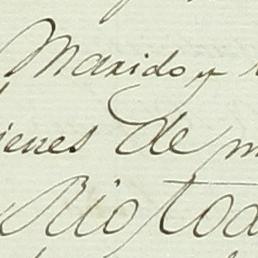 Marido y
ienes de m
Rio, tod